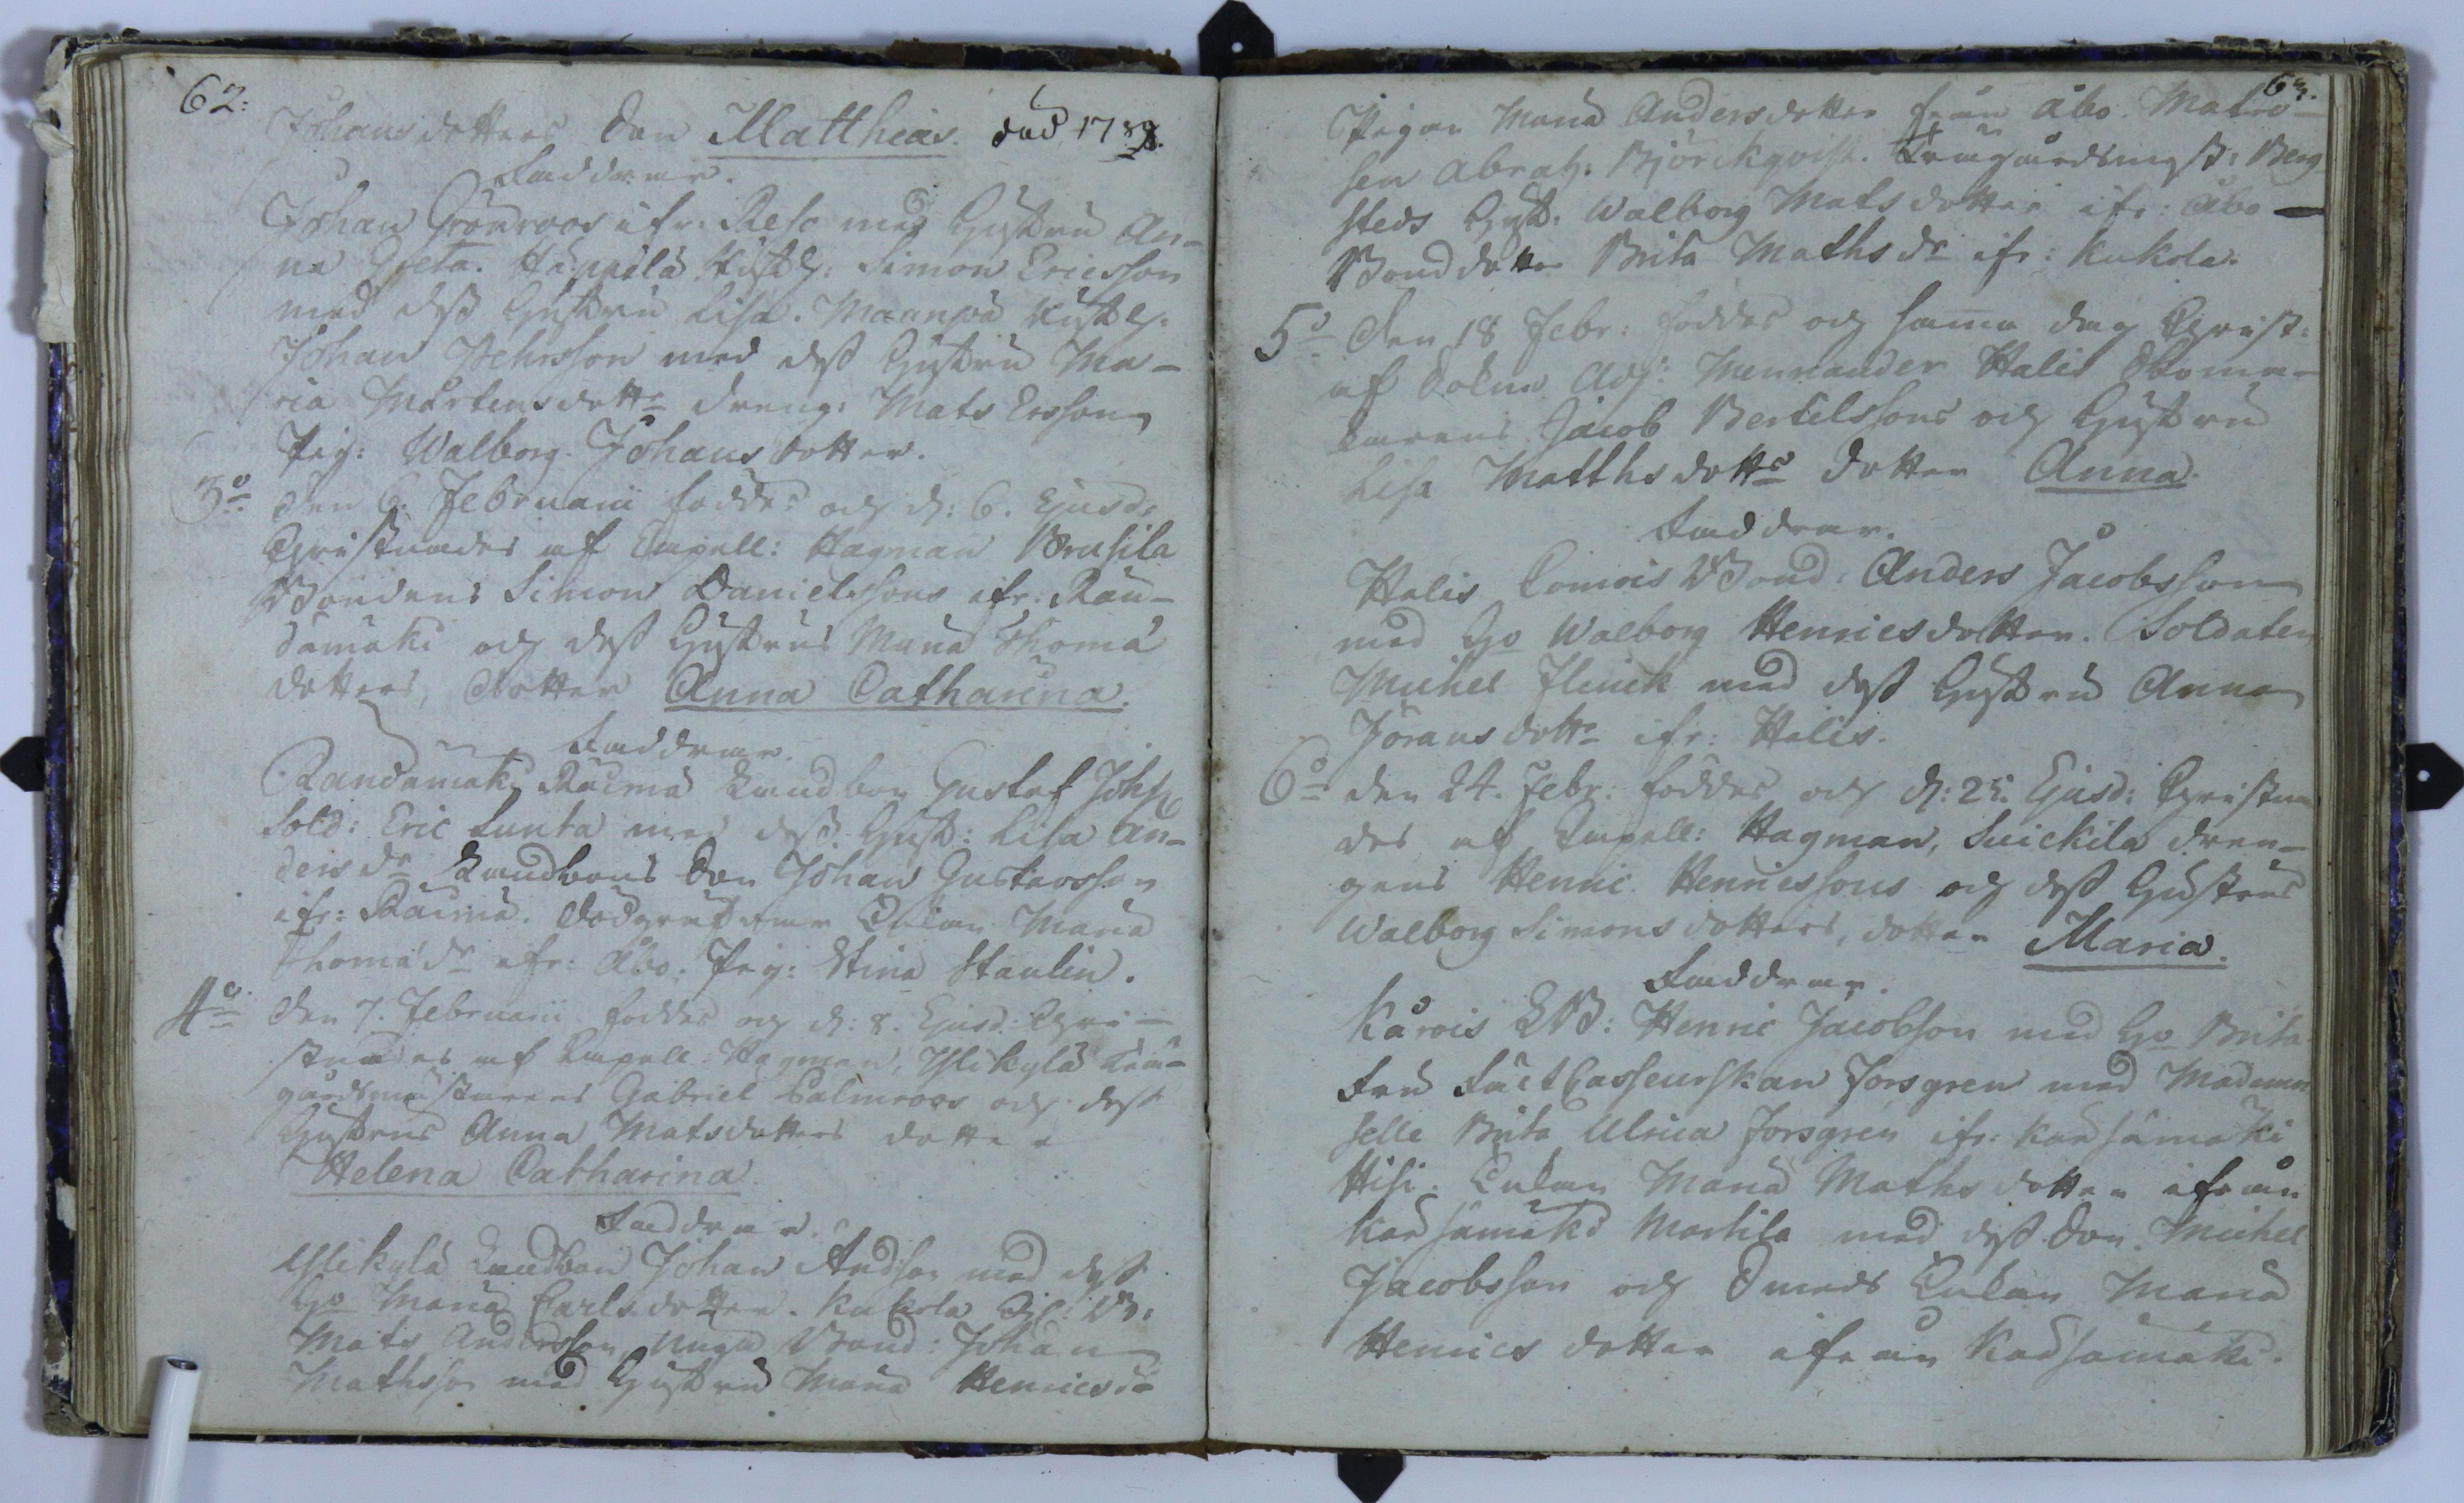 62:
Johansdotters Son Matthias. död 1789.
Faddrar.
Johan Grönroos ifr: Reso med Hustru An-
na Greta. Häppilä Husb: Simon Ericsson
med dess Hustru Lisa. Maanpä Husb:
Johan Pehrsson med dess Hustru Ma-
ria Mårtensdotter Dreng: Mats Ersson
Pig: Walborg Johansdotter.
3o den 6. Februarii föddes och d: 6. Ejusd:
Christnades af Capell: Hagman
Bondens Simon Danielssons ifr: Ran-
damäki och dess Hustrus Maria Thomä
dotters, dotter Anna Catharina.
Faddrar.
Randamäki Räimä Landbon Gustaf Johss
Sold: Eric Lunta med dess Hust: Lisa An-
dersdr Landbons Son Johan Gustavsson
ifr: Räimä. Enkan Maria
Thomädr ifr: Åbo. Pig: Stina Staulin.
4o den 7. Februarii föddes och d: 8. Ejusd: Chri-
stnades af Capell: Hagman, Yllikylä Krü-
gårdsmästarens Gabriel Palmroos och dess
Hustrus Anna Matsdotters dotter
Helena Catharina.
Faddrar.
Yllikylä Landbon Johan Andson med dess
Ho Maria Carlsdotter. Kukola
Mats Andersson, Bond: Johan
Mathsson med Hustru Maria Henricsdr
63.
Pigan Maria Andersdotter från Åbo. Matro-
sen Abrah: Björckqvist. Krügårdsmäst: Berg-
steds Hust: Walborg Matsdotter ifr: Åbo
Bonddotter Brita Mathsdr ifr: Kukola.
5o den 18 Febr: föddes och samma dag Christ:
af Sokne Adj: Mennander Halis Skoma-
karens Jacob Bertelssons och Hustru
Lisa Matthsdotters dotter Anna.
Faddrar.
Halis Bond: Anders Jacobsson
med Ho Walborg Henricsdotter. Soldaten
Michel Flinck med dess Hustru Anna
Jöransdotter ifr: Halis.
6o den 24. Febr: föddes och d: 25. Ejusd: Christna-
des af Capell: Hagman, Suickila dren-
gens Henric Henricssons och dess Hustrus
Walborg Simonsdotters, dotter Maria.
Faddrar.
Kårois LB: Henric Jacobsson med Ho Brita.
Fru Forsgren med Madamoi-
selle Brita Ulrica Forsgren ifr: Karsämäki
Hisi. Enkan Maria Mathsdotter ifrån
Karsämäki Martila med dess Son Michel
Jacobsson och Smeds Enkan Maria
Henricsdotter ifrån Karsämäki.